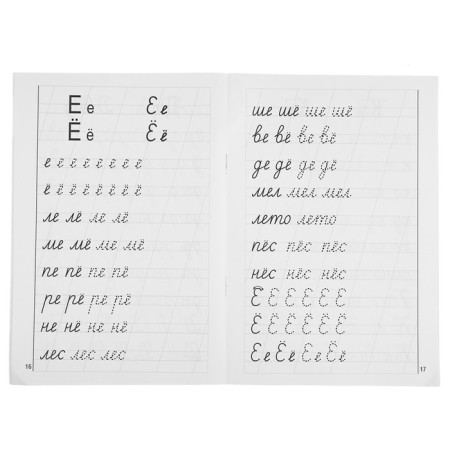 Е е Е е
Ё ё Ё ё
е ё ё ё ё ё ё ё
ё ё ё ё ё ё ё ё
ле лё ле лё
ме мё ме мё
пе пё пе пё
ре рё ре рё
не нё не нё
лес лес лес
16
ше шё ше шё
ве вё ве вё
де дё де дё
мел мел мел
лето лето
пёс пёс пёс
нёс нёс нёс
Е Е Е Е Е Е
Ё Ё Ё Ё Ё Ё
Ее Ёё Ее Ёё
17